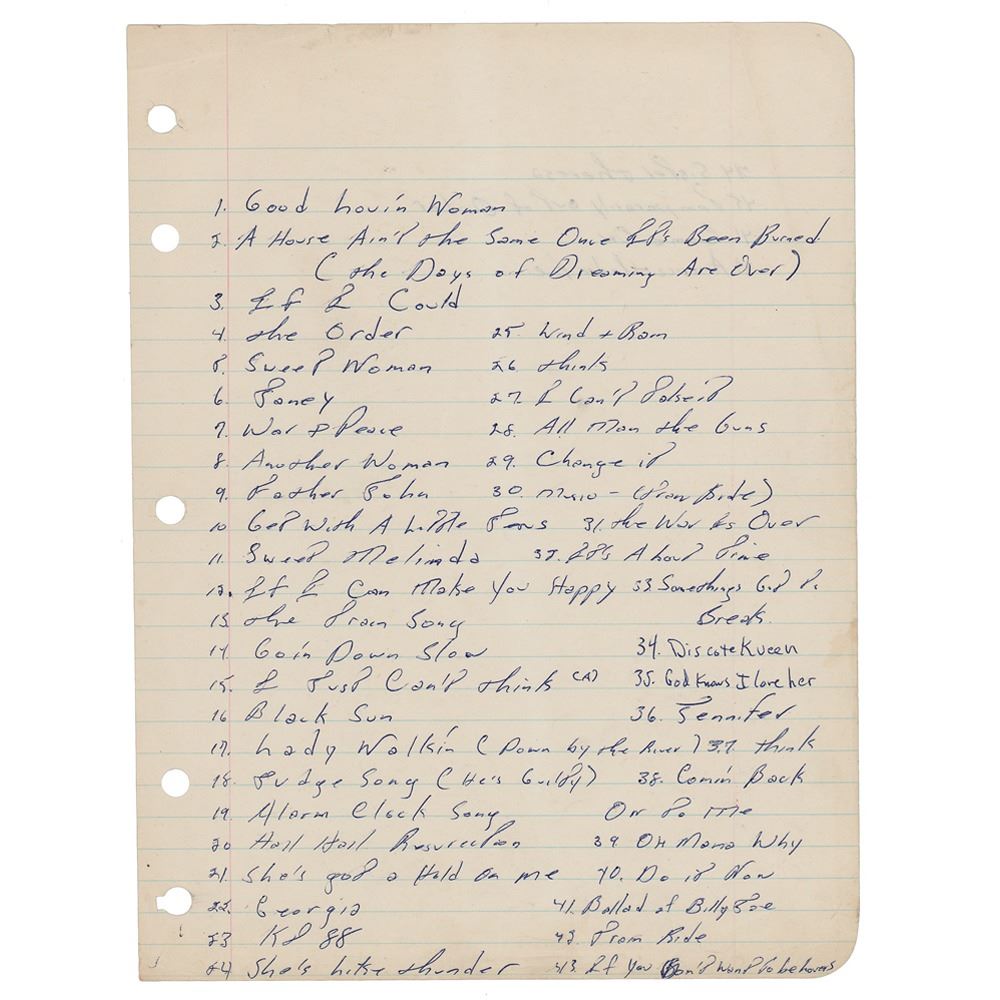 1. Good Lovin Woman
2. A House Ain't the Same Once It's Been Burned
(the Days of Dreaming Are Over)
3. If I Could
4. the Order 25. Wind + Rain
5. Sweet Woman 26 think
6. Toney 27. I Can't
7. War & Peace 28. All Man the Guns
8. Another Woman 29. Change it
9. Father John 30. Music - (Train Ride)
10 Get With A Little Jesus 31. the War Is Over
11. Sweet Melinda 32. It's About Time
12. If I Can Make You Happy 33 Somethings Got To
13 the Train Song Break.
14 Goin Down Slow 34. Discote Kueen
15. I Just Can't think (A) 35. God Knows I love her
16 Black Sun 36. Jennifer
17. Lady Walkin (Down by the River) 37. think
18. Judge Song (He's Guilty) 38. Comin Back
19. Alarm Clock Song On to me
20 Hail Hail Resurection 39 Oh Mama Why
21. She's got a Hold On me 40. Do it Now
22. Georgia 41. Ballad of Billy Joe
23 88 42. Train Ride
24 She's like thunder 43. If You Don't Want to be lovers